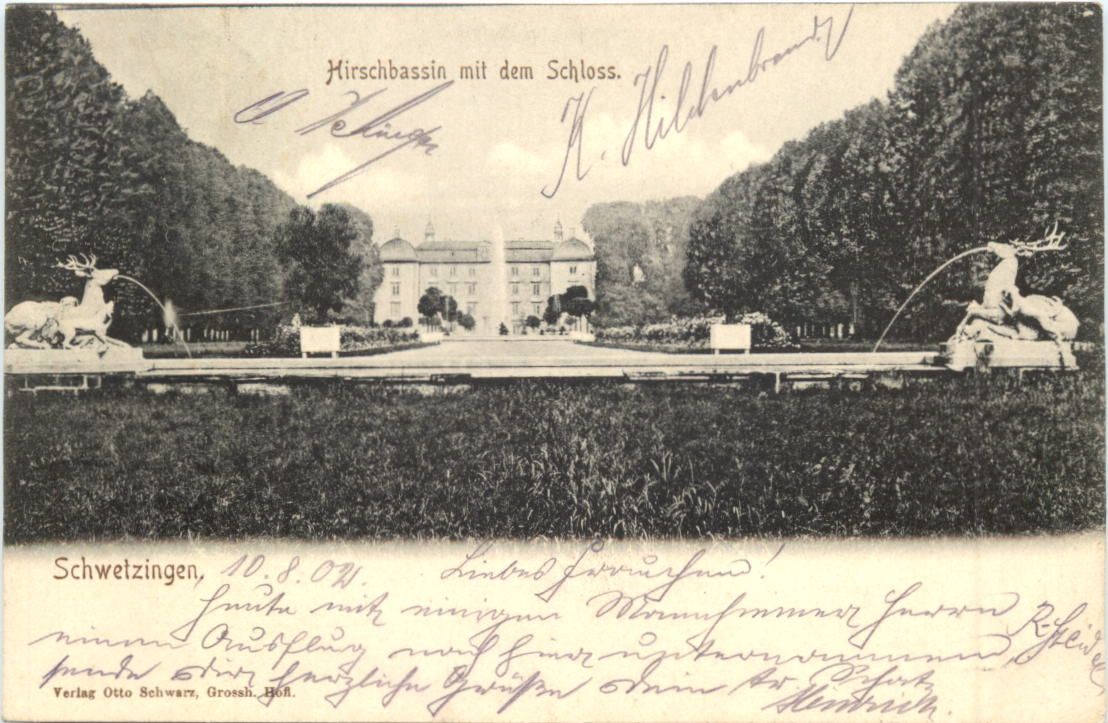 Hirschbassin mit dem Schloss.
K. Hildenbrand
Schwetzingen, 10.8.02. Liebes Frauchen!
Heute mit einigen Mannheimer Herrn
einen Ausflug nach hier unternommen
sende dir herzliche Grüße dein tr. Schatz
Heinrich.
Verlag Otto Schwarz, Grossh. Hofl.